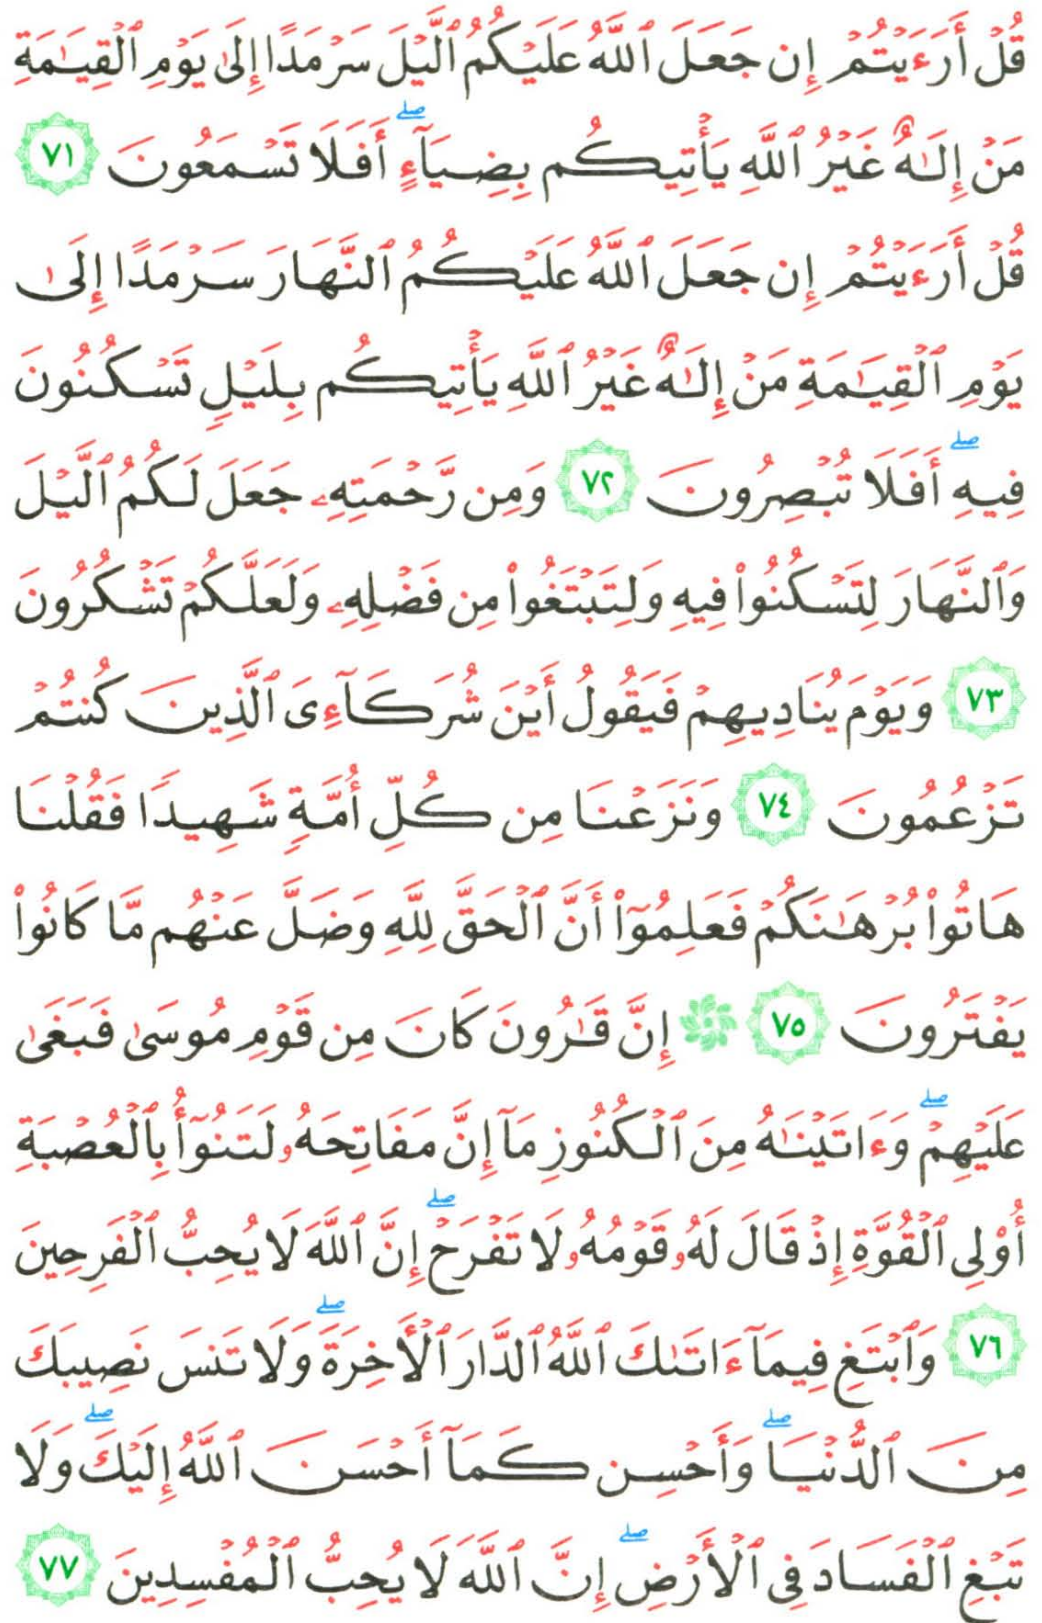 قُلْ أَرَءَيْتُمْ إِن جَعَلَ ٱللَّهُ عَلَيْكُمُ ٱلَّيْلَ سَرْمَدًا إِلَىٰ يَوْمِ ٱلْقِيَـٰمَةِ
مَنْ إِلَـٰهٌ غَيْرُ ٱللَّهِ يَأْتِيكُم بِضِيَآءٍ ۖ أَفَلَا تَسْمَعُونَ ٧١
قُلْ أَرَءَيْتُمْ إِن جَعَلَ ٱللَّهُ عَلَيْكُمُ ٱلنَّهَارَ سَرْمَدًا إِلَىٰ
يَوْمِ ٱلْقِيَـٰمَةِ مَنْ إِلَـٰهٌ غَيْرُ ٱللَّهِ يَأْتِيكُم بِلَيْلٍ تَسْكُنُونَ
فِيهِ ۖ أَفَلَا تُبْصِرُونَ ٧٢ وَمِن رَّحْمَتِهِۦ جَعَلَ لَكُمُ ٱلَّيْلَ
وَٱلنَّهَارَ لِتَسْكُنُوا۟ فِيهِ وَلِتَبْتَغُوا۟ مِن فَضْلِهِۦ وَلَعَلَّكُمْ تَشْكُرُونَ
٧٣ وَيَوْمَ يُنَادِيهِمْ فَيَقُولُ أَيْنَ شُرَكَآءِىَ ٱلَّذِينَ كُنتُمْ
تَزْعُمُونَ ٧٤ وَنَزَعْنَا مِن كُلِّ أُمَّةٍ شَهِيدًا فَقُلْنَا
هَاتُوا۟ بُرْهَـٰنَكُمْ فَعَلِمُوٓا۟ أَنَّ ٱلْحَقَّ لِلَّهِ وَضَلَّ عَنْهُم مَّا كَانُوا۟
يَفْتَرُونَ ٧٥ ۞ إِنَّ قَـٰرُونَ كَانَ مِن قَوْمِ مُوسَىٰ فَبَغَىٰ
عَلَيْهِمْ ۖ وَءَاتَيْنَـٰهُ مِنَ ٱلْكُنُوزِ مَآ إِنَّ مَفَاتِحَهُۥ لَتَنُوٓأُ بِٱلْعُصْبَةِ
أُو۟لِى ٱلْقُوَّةِ إِذْ قَالَ لَهُۥ قَوْمُهُۥ لَا تَفْرَحْ ۖ إِنَّ ٱللَّهَ لَا يُحِبُّ ٱلْفَرِحِينَ
٧٦ وَٱبْتَغِ فِيمَآ ءَاتَىٰكَ ٱللَّهُ ٱلدَّارَ ٱلْـَٔاخِرَةَ ۖ وَلَا تَنسَ نَصِيبَكَ
مِنَ ٱلدُّنْيَا ۖ وَأَحْسِن كَمَآ أَحْسَنَ ٱللَّهُ إِلَيْكَ ۖ وَلَا
تَبْغِ ٱلْفَسَادَ فِى ٱلْأَرْضِ ۖ إِنَّ ٱللَّهَ لَا يُحِبُّ ٱلْمُفْسِدِينَ ٧٧